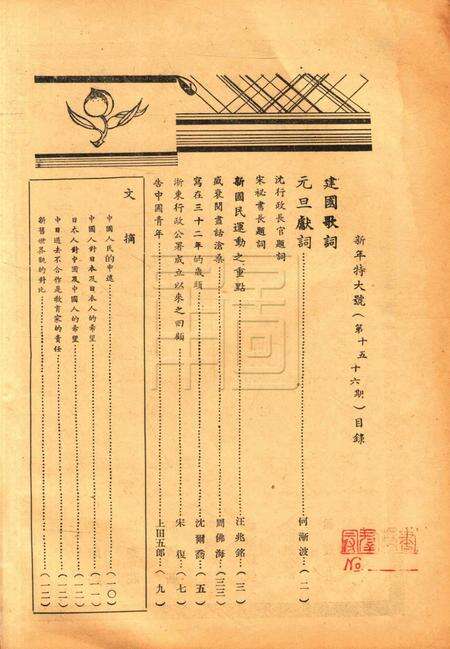 新年特大號(第十五十六期)目錄
建國歌詞
元旦獻詞……何漸波…(二)
沈行政長官題詞
宋祕書長題詞
新國民運動之重點……汪兆銘…(三)
盛衰閱盡話滄桑……周佛海(三三)
寫在三十二年的歲頭……沈爾喬…(五)
浙東行政公署成立以來之回顧……宋復…(七)
告中國青年……上田五郎…(九)
文摘
中國人民的中途……(一〇)
中國人對日本及日本人的希望……(一一)
日本人對中國及中國人的希望……(一二)
中日過去不合作是教育家的責任……(一二)
新舊世界觀的對比……(一二)
No